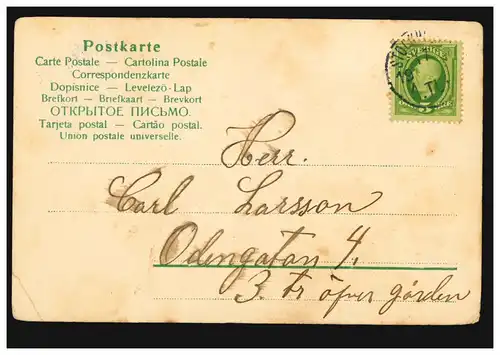 Postkarte
Carte Postale — Cartolina Postale
Correspondenzkarte
Dopisnice — Levelezö-Lap
Brefkort — Briefkaart — Brevkort
ОТКРЫТОЕ ПИСЬМО.
Tarjeta postal — Cartão postal.
Union postale universelle.
Herr.
Carl Larsson
Odengatan 4.
3. tr öfver gården